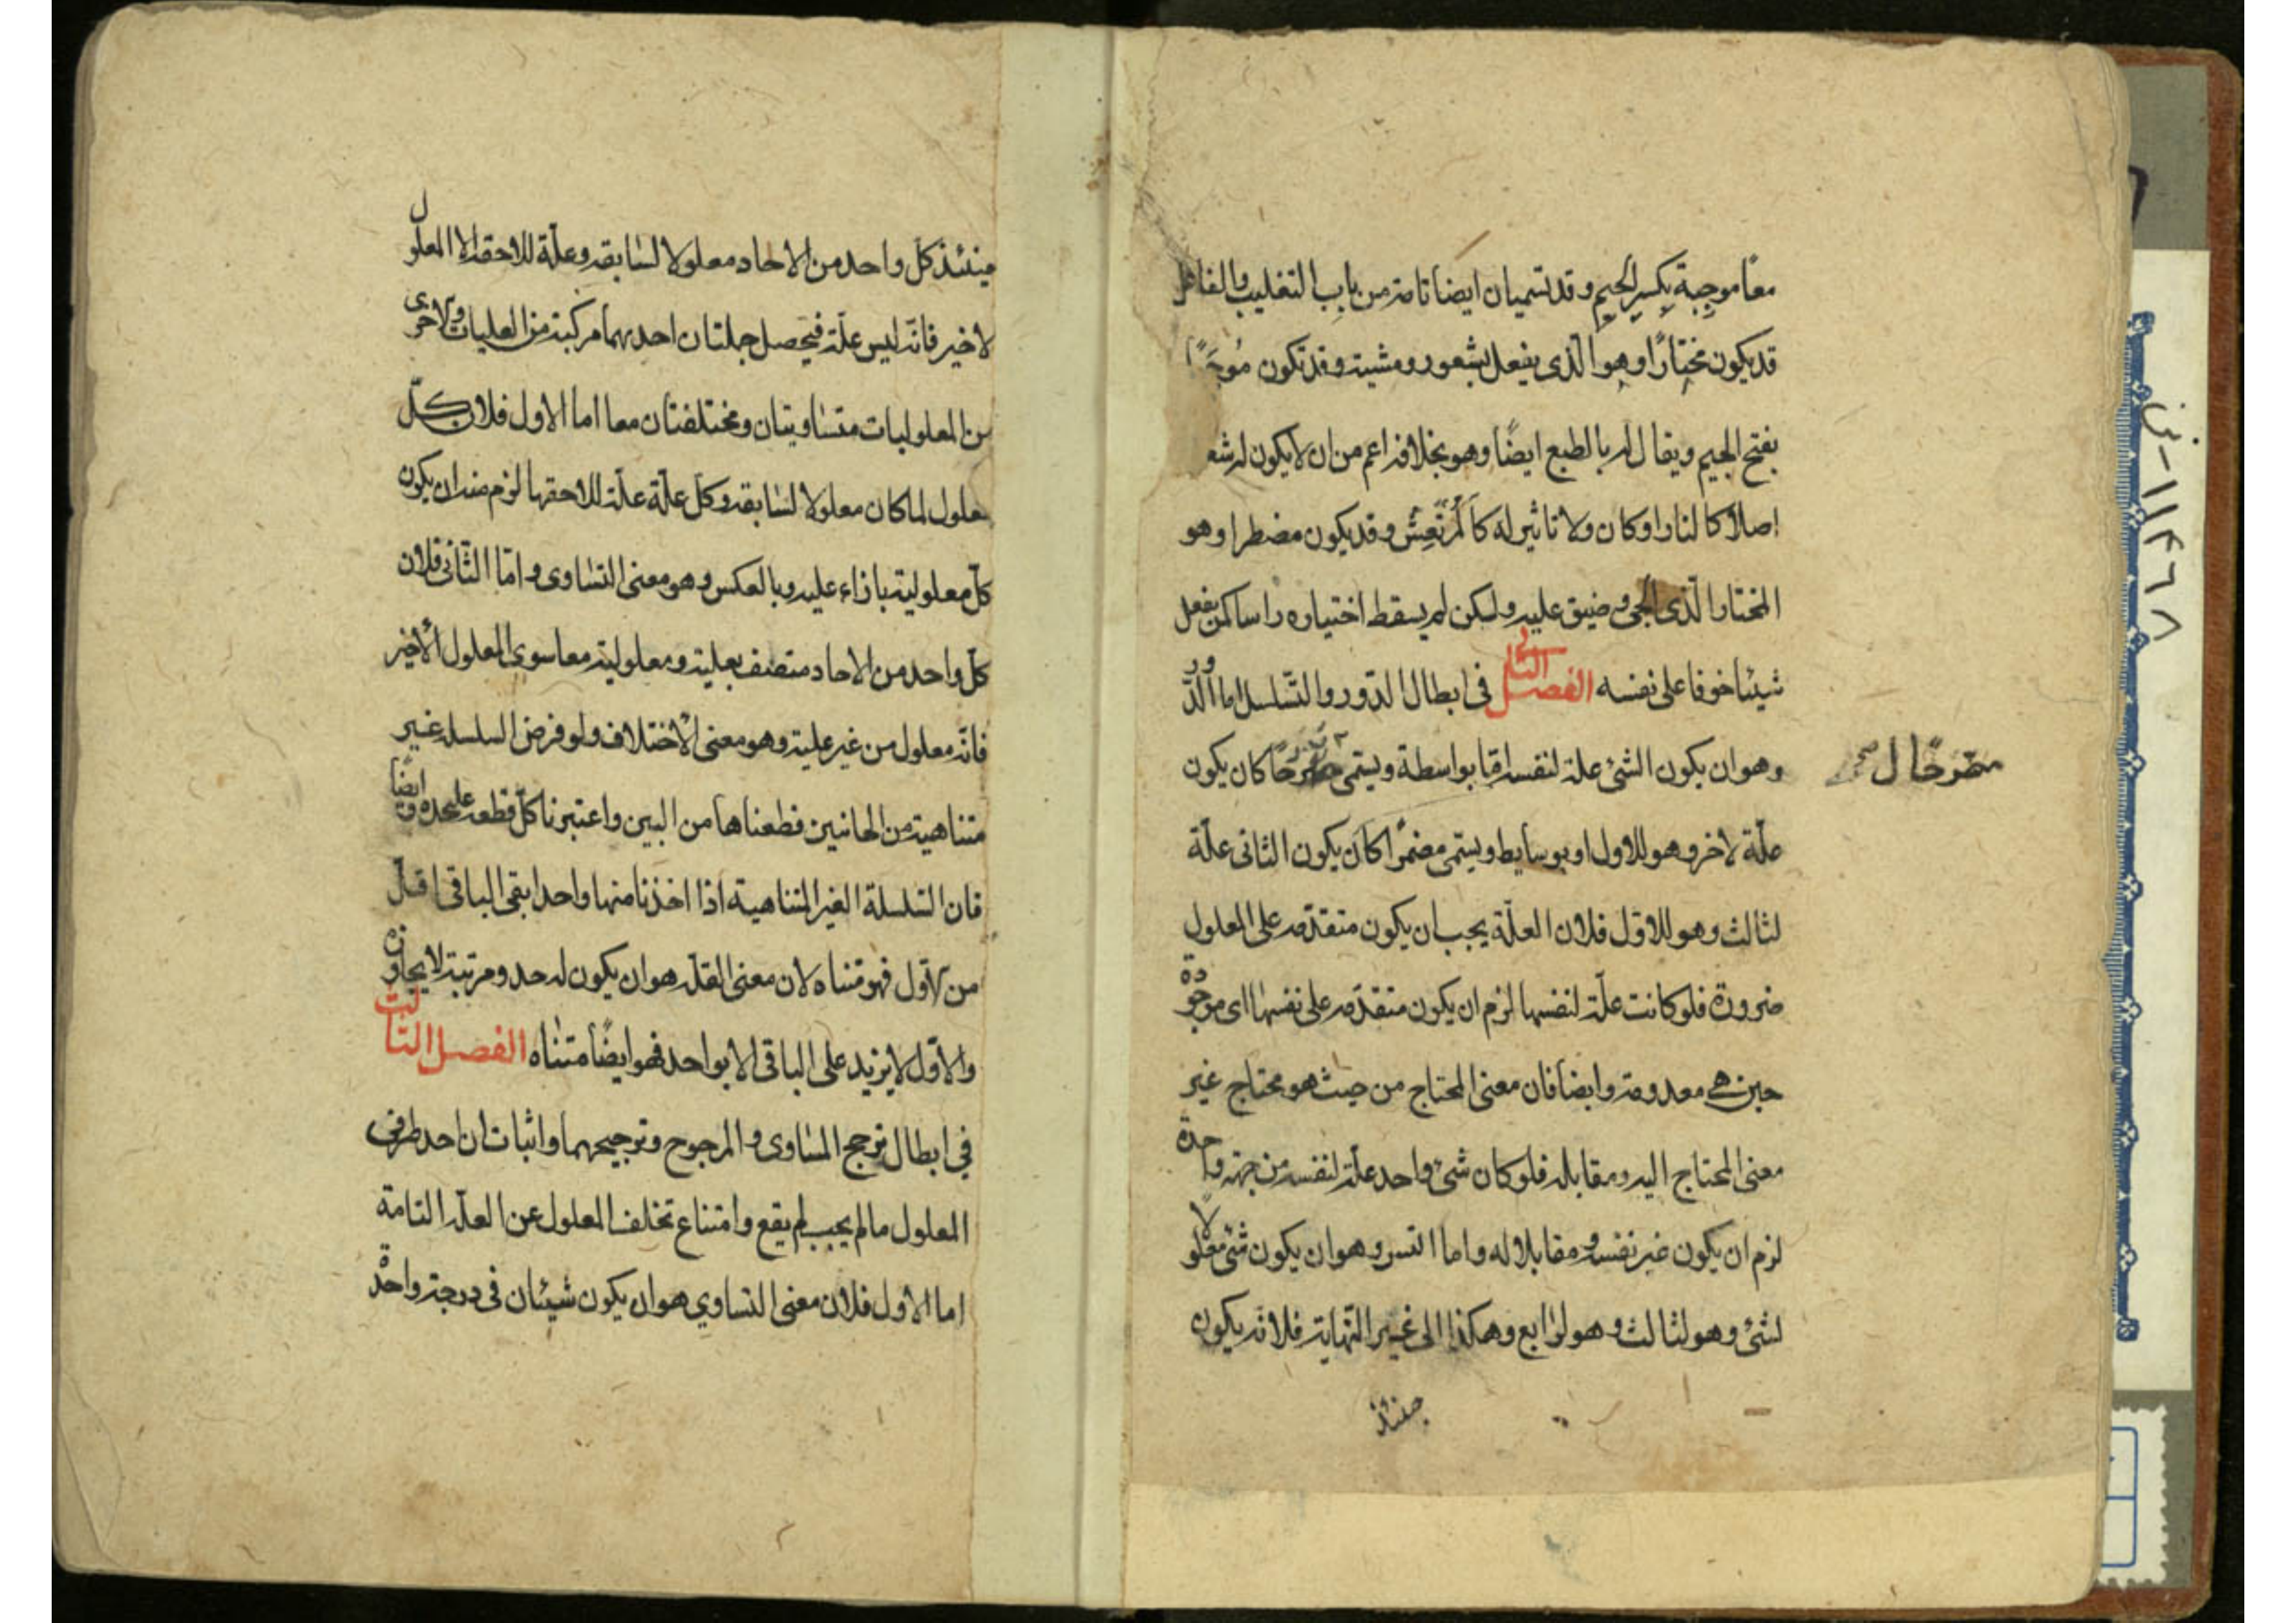 معًا موجِبة بكسر الجيم وقد تسميان ايضا تامة من باب التغليب والفاعل
قد يكون مختارًا وهو الّذى يفعل بشعور ومشية وقد تكون مُوجَبًا
بفتح الجيم ويقال له بالطبع ايضًا وهو بخلافه اعم من ان لا يكون له شعو
اصلاً كالنار او كان ولا تاثير له كالمُرتَعِش وقد يكون مضطرا وهو
المختار الّذى الجى وضيق عليه ولكن لم يسقط اختياره راسا كمن يفعل
شيئا خوفا على نفسه الفصل الثانى فى ابطال الدّور والتّسلسل اما الدّور
وهو ان يكون الشئ علة لنفسه امّا بواسطة ويسمى مصرّحًا كان يكون
مصّرحًا ل
علّة لاخر وهو للاول او بوسايط ويسمى مضمرًا كان يكون الثانى علّة
لثالث وهو للاوّل فلان العلّة يجب ان يكون متقدّمه على المعلول
ضرورة فلو كانت علّة لنفسها لزم ان يكون متقدّمه على نفسها اى موجودة
حين هى معدومة وايضا فان معنى المحتاج من حيث هو محتاج غير
معنى المحتاج اليه ومقابله فلو كان شئ واحد علّة لنفسه من جهة واحدة
لزم ان يكون غير نفسه ومقابلا له واما التس وهو ان يكون شئ معلولًا
لشئ وهو لثالث وهو لرابع وهكذا الى غير النّهاية فلانه يكون
حينئذ
حينئذ كلّ واحد من الاحاد معلولا لسابقه وعلّة للاحقه الا المعلول
لاخير فانّه ليس علّة فيحصل جملتان احديهما مركبة من العليات والاخرى
من المعلوليات متساويتان ومختلفتان معا اما الاول فلان كلّ
معلول لما كان معلولا لسابقه وكلّ علّة علّة للاحقها لزم منه ان يكون
كلّ معلولية بازاء علية وبالعكس وهو معنى التساوى وامّا الثّانى فلان
كلّ واحد من الاحاد متصف بعلية ومعلولية معا سوى المعلول الاخير
فانّه معلول من غير علية وهو معنى الاختلاف ولو فرض السلسلة غير
متناهية من الجانبين قطعناها من البين واعتبرنا كلّ قطعة عليحده وايضًا
فان السّلسلة الغير المتناهية اذا اخذنا منها واحدا بقى الباقى اقلّ
من الاوّل فهو متناه لان معنى القلّة هو ان يكون له حد ومرتبة لا يجاوزه
والاوّل لا يزيد على الباقى الا بواحد فهو ايضًا متناه الفصل الثالث
فى ابطال ترجح المساوى والمرجوح وترجيحهما واثبات ان احد طرفى
المعلول ما لم يجب لم يقع وامتناع تخلف المعلول عن العلّة التامة
اما الاول فلان معنى التساوي هو ان يكون شيئان فى درجة واحدة
١١٣٦٨